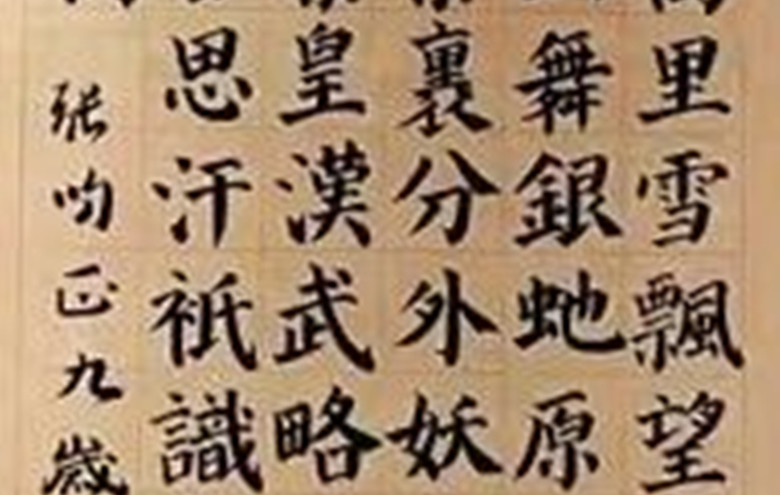 里雪飄望
舞銀虵原
裏分外妖
皇漢武略
思汗祇識
张吻正九歲